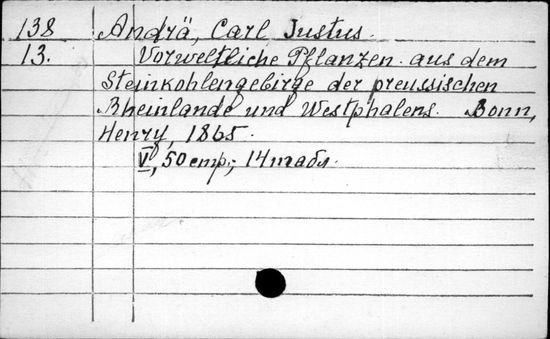 138 Andrä, Carl Justus.
13. Vorweltliche Pflanzen aus dem
Steinkohlengebirge der preussischen
Rheinlande und Westphalens. Bonn,
Henry, 1865.
V, 50 стр.; 14 табл.